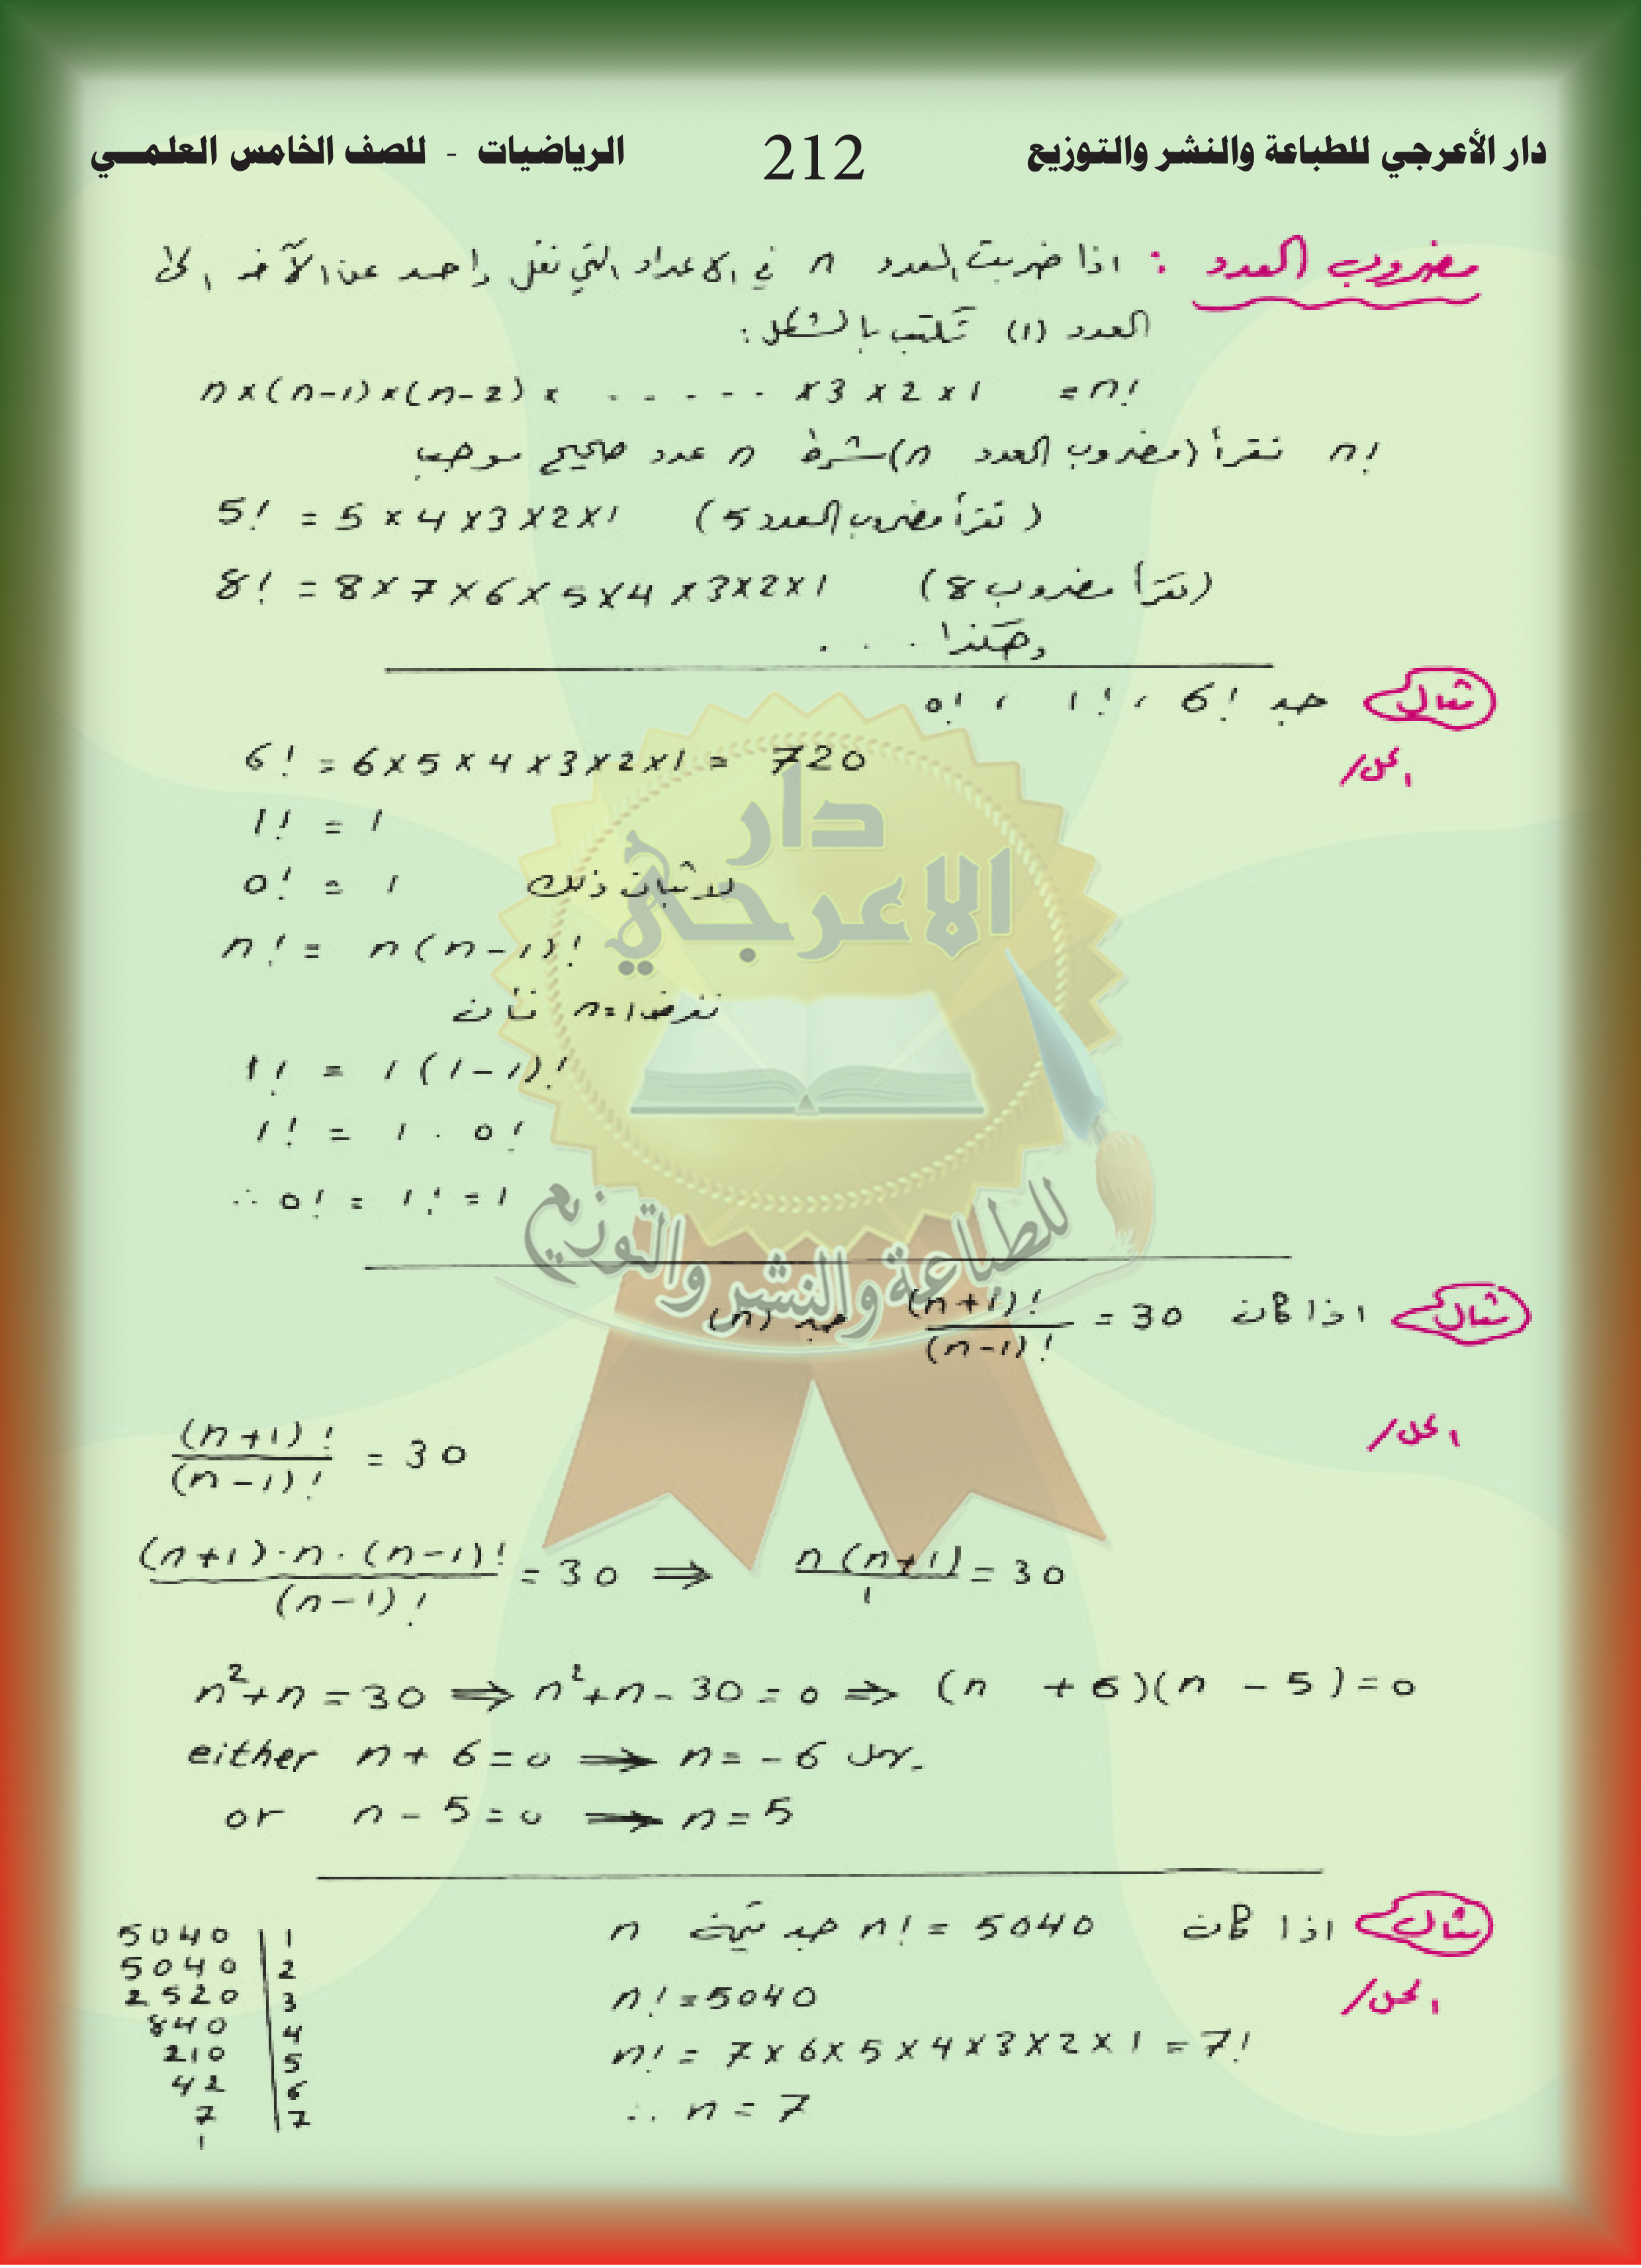 دار الأعرجي للطباعة والنشر والتوزيع 212 الرياضيات - للصف الخامس العلمي
مضروب العدد : اذا ضربت العدد n في الاعداد التي تقل واحد عن الآخر الى
العدد (1) تكتب بالشكل:
n×(n-1)×(n-2)× . . . . . ×3×2×1 = n!
n! تقرأ (مضروب العدد n) شرط n عدد صحيح موجب
5! = 5×4×3×2×1 (تقرأ مضروب العدد 5)
8! = 8×7×6×5×4×3×2×1 (تقرأ مضروب 8)
وهكذا . . .
مثال جد 6! ، 1! ، 0!
الحل/
6! = 6×5×4×3×2×1 = 720
1! = 1
0! = 1 لاثبات ذلك
n! = n(n-1)!
نفرض n=1 فأن
1! = 1(1-1)!
1! = 1 . 0!
∴ 0! = 1! = 1
دار
الاعرجي
للطباعة والنشر والتوزيع
مثال اذا كان (n+1)!/(n-1)! = 30 جد (n)
الحل/
(n+1)!/(n-1)! = 30
(n+1)·n·(n-1)!/(n-1)! = 30 ⇒ n(n+1)/1 = 30
n²+n=30 ⇒ n²+n-30=0 ⇒ (n +6)(n -5)=0
either n+6=0 ⇒ n=-6
or n-5=0 ⇒ n=5
مثال اذا كان n! = 5040 جد قيمة n
الحل/
n! = 5040
n! = 7×6×5×4×3×2×1 = 7!
∴ n = 7
5040 | 1
5040 | 2
2520 | 3
840 | 4
210 | 5
42 | 6
7 | 7
1